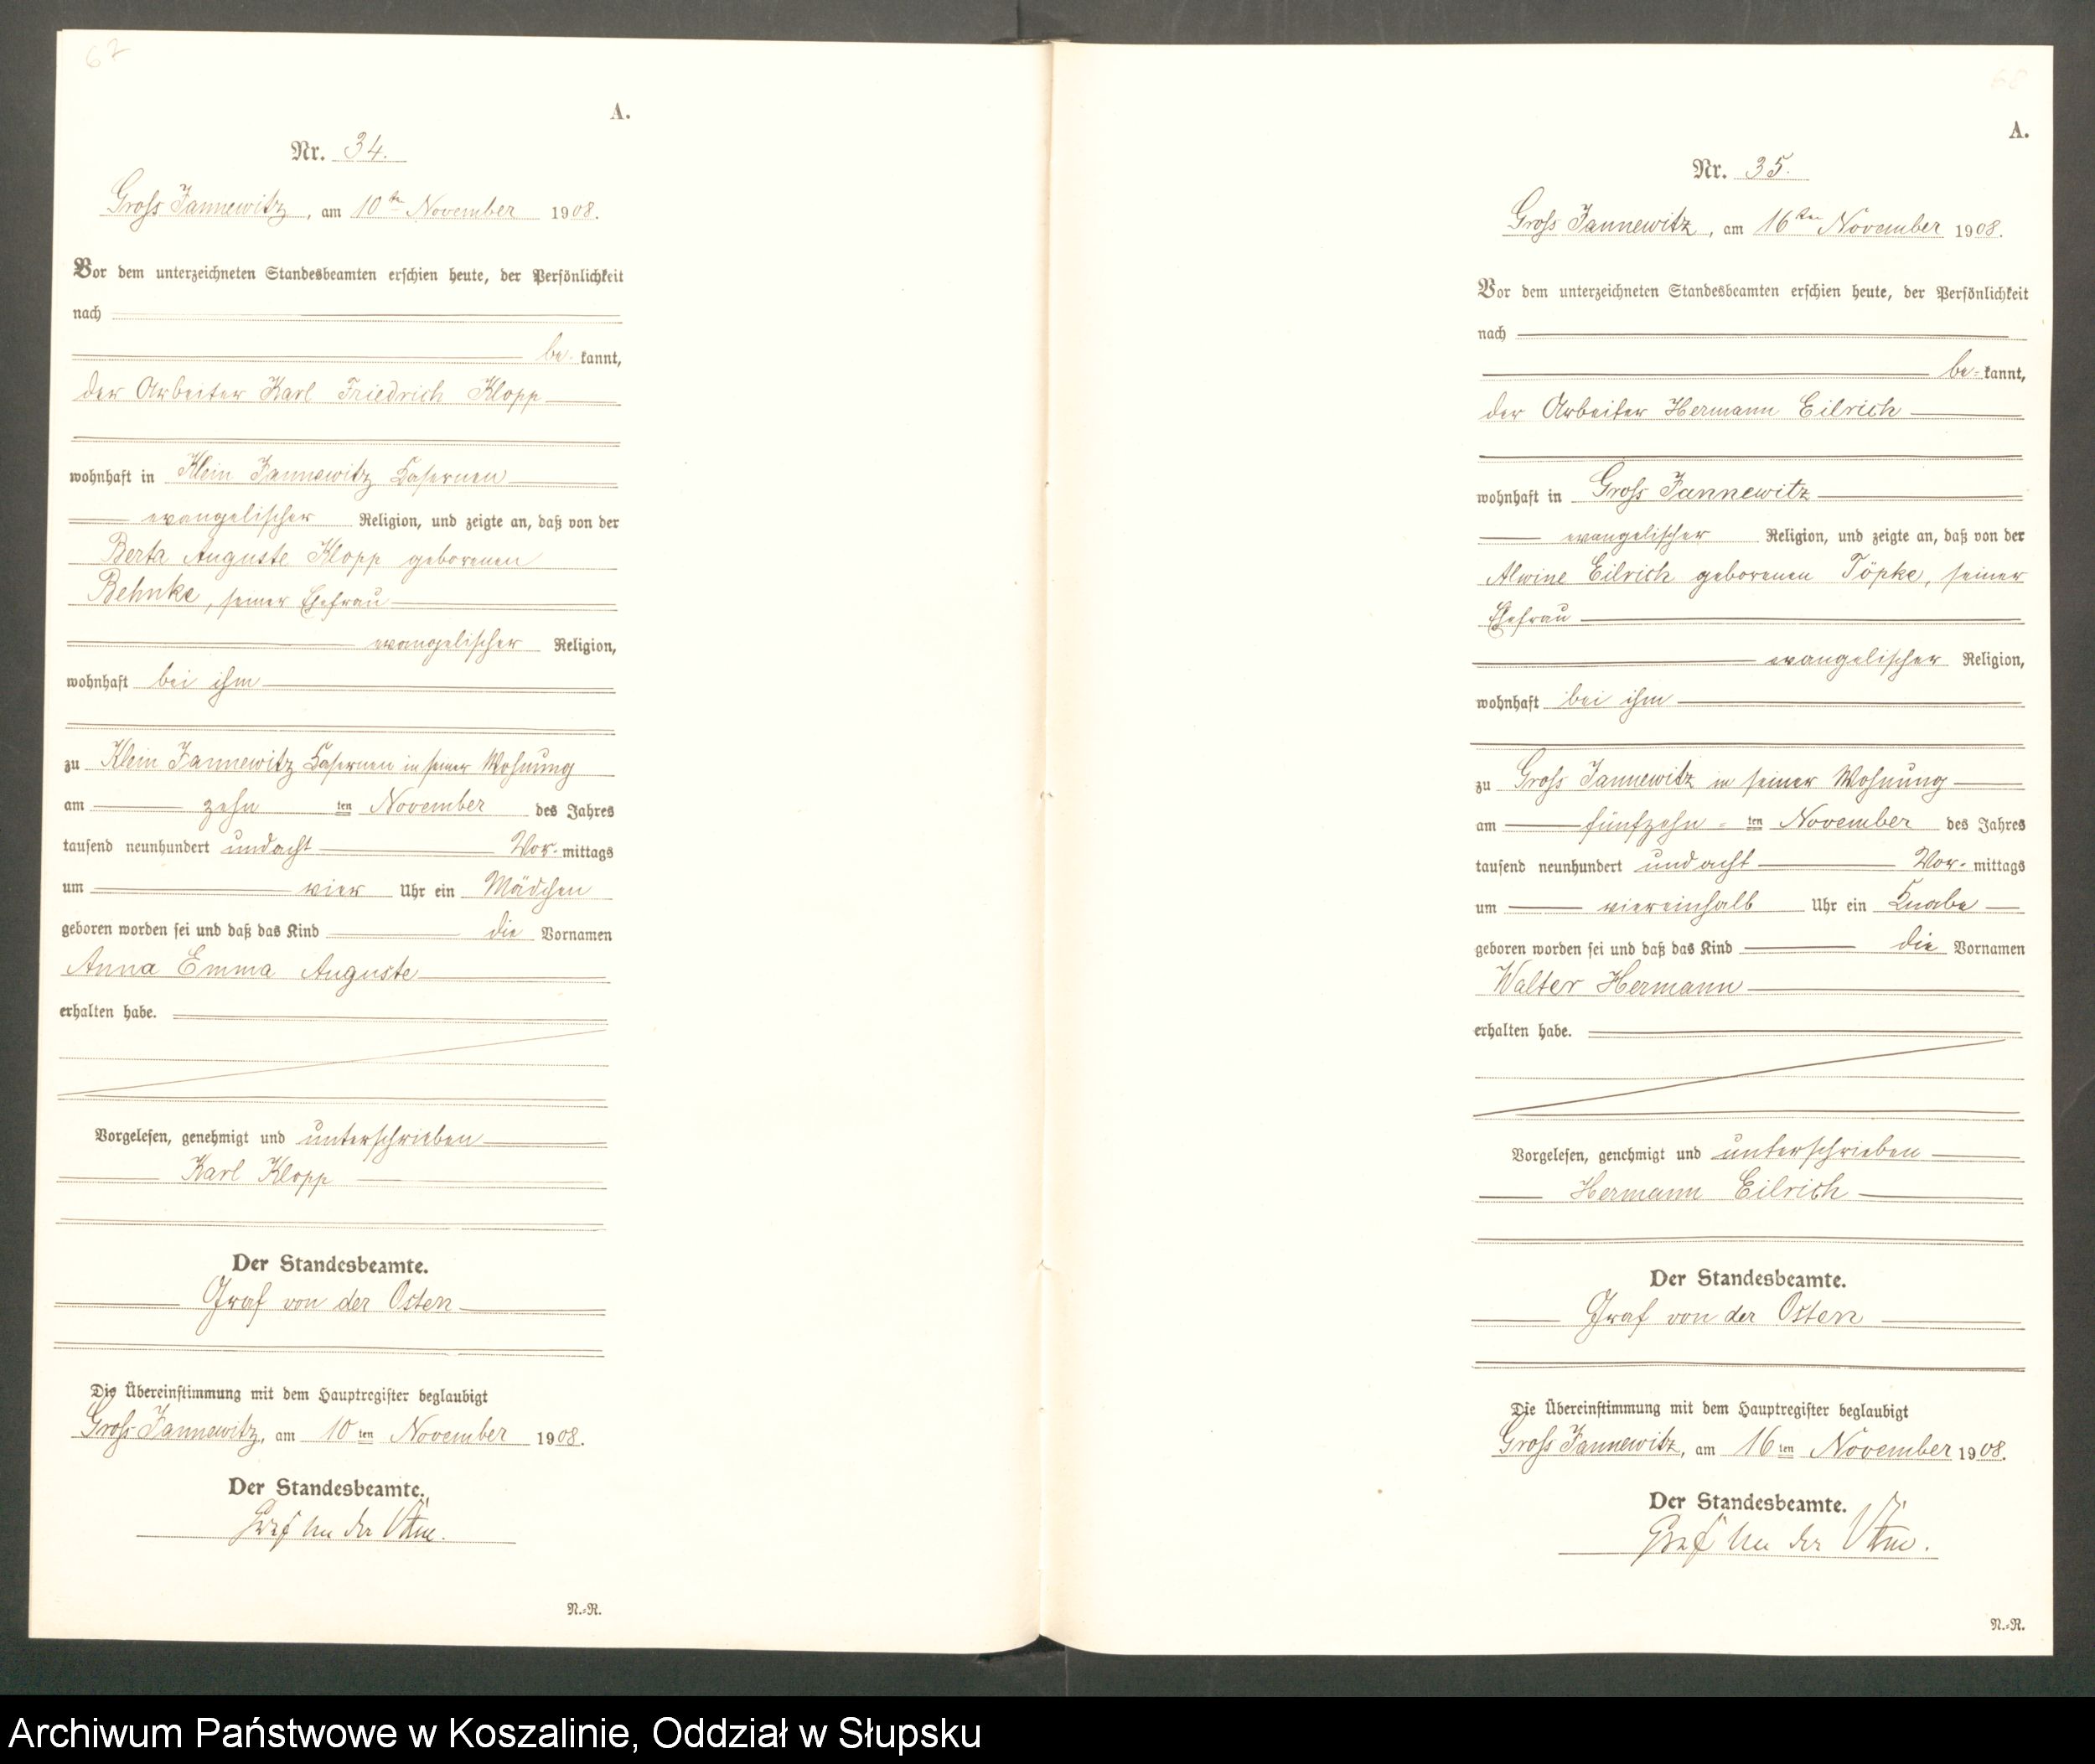 67
A.
Nr. 34.
Gross Jannewitz, am 10ten November 1908.
Vor dem unterzeichneten Standesbeamten erschien heute, der Persönlichkeit
nach
be-kannt,
der Arbeiter Karl Friedrich Klopp
wohnhaft in Klein Jannewitz Kasernen
evangelischer Religion, und zeigte an, daß von der
Berta Auguste Klopp geborenen
Behnke, seiner Ehefrau
evangelischer Religion,
wohnhaft bei ihm
zu Klein Jannewitz Kasernen in seiner Wohnung
am zehn ten November des Jahres
tausend neunhundert undacht Vor-mittags
um vier Uhr ein Mädchen
geboren worden sei und daß das Kind die Vornamen
Anna Emma Auguste
erhalten habe.
Vorgelesen, genehmigt und unterschrieben
Karl Klopp
Der Standesbeamte.
Graf von der Osten
Die Übereinstimmung mit dem Hauptregister beglaubigt
Gross Jannewitz, am 10 ten November 1908.
Der Standesbeamte.
Graf von der Osten.
N.=R.
68
A.
Nr. 35.
Gross Jannewitz, am 16ten November 1908.
Vor dem unterzeichneten Standesbeamten erschien heute, der Persönlichkeit
nach
be-kannt,
der Arbeiter Hermann Eilrich
wohnhaft in Gross Jannewitz
evangelischer Religion, und zeigte an, daß von der
Alwine Eilrich geborenen Töpke, seiner
Ehefrau
evangelischer Religion,
wohnhaft bei ihm
zu Gross Jannewitz in seiner Wohnung
am fünfzehn ten November des Jahres
tausend neunhundert undacht Vor-mittags
um viereinhalb Uhr ein Knabe
geboren worden sei und daß das Kind die Vornamen
Walter Hermann
erhalten habe.
Vorgelesen, genehmigt und unterschrieben
Hermann Eilrich
Der Standesbeamte.
Graf von der Osten
Die Übereinstimmung mit dem Hauptregister beglaubigt
Gross Jannewitz, am 16 ten November 1908.
Der Standesbeamte.
Graf von der Osten.
N.=R.
Archiwum Państwowe w Koszalinie, Oddział w Słupsku